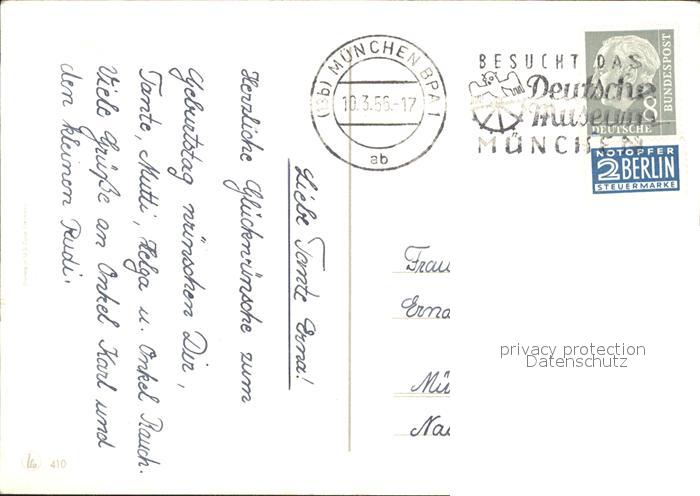 Liebe Tante Erna!
Herzliche Glückwünsche zum
Geburtstag wünschen Dir,
Tante, Mutti, Helga u. Onkel Rauch.
Viele Grüße an Onkel Karl und
den kleinen Rudi.
(13b) MÜNCHEN BPA 1
10.3.56.-17
ab
BESUCHT DAS
Deutsche
Museum
MÜNCHEN
8
DEUTSCHE
BUNDESPOST
NOTOPFER
2 BERLIN
STEUERMARKE
Frau
Erna
privacy protection
Datenschutz
410